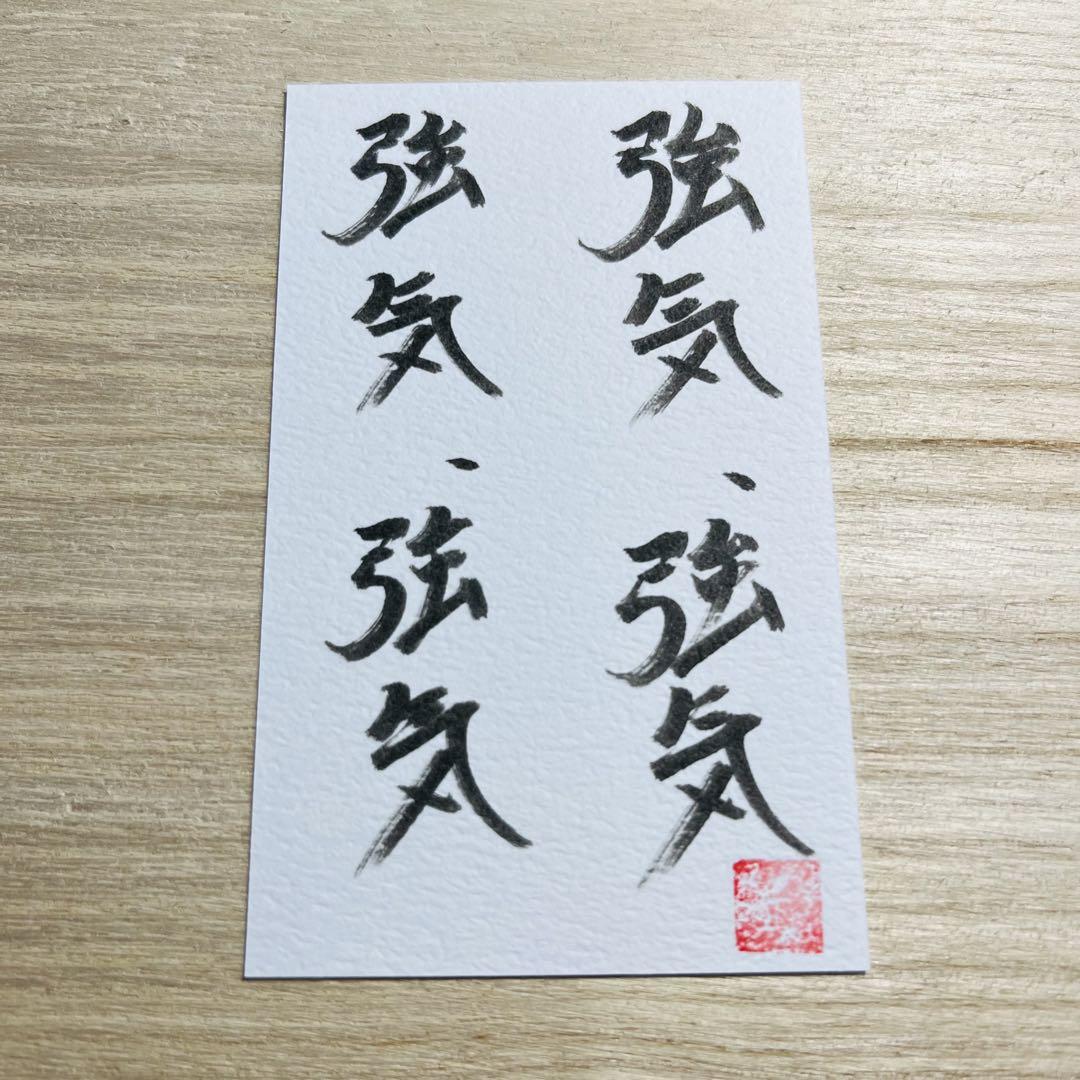 強気、強気
強気、強気